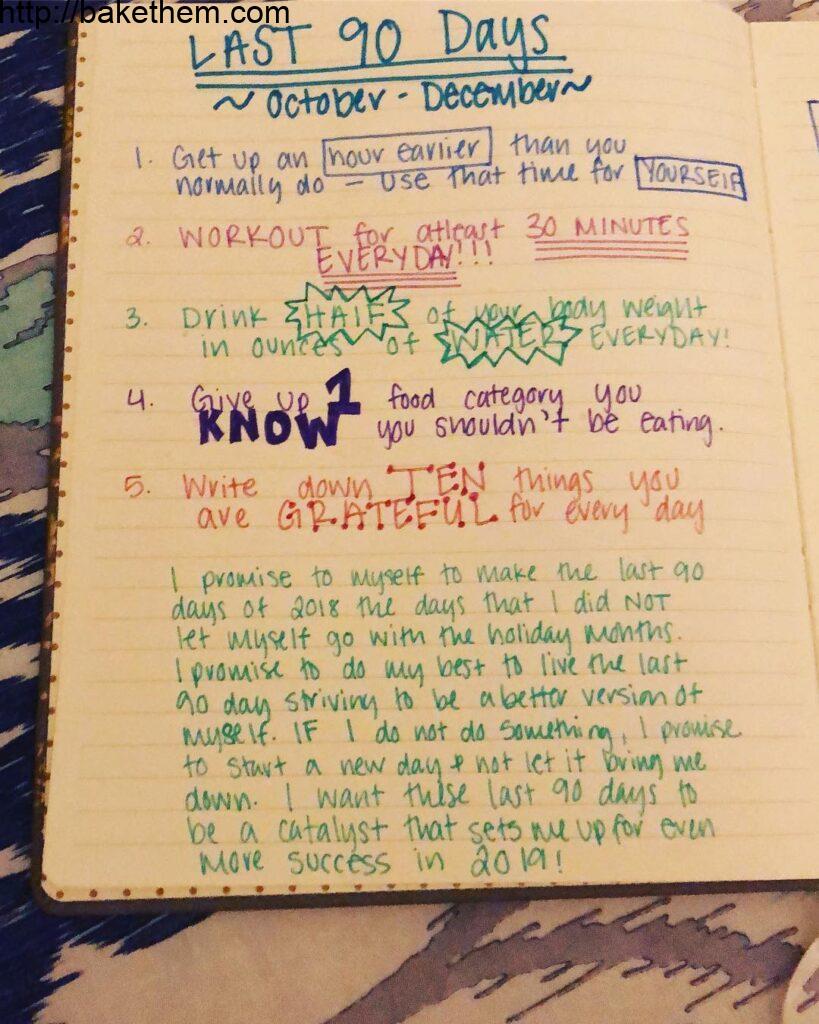 http://bakethem.com
LAST 90 Days
~ October - December ~
1. Get up an hour earlier than you
normally do - use that time for YOURSELF
2. WORKOUT for atleast 30 MINUTES
EVERYDAY!!!
3. Drink HALF of your body weight
in ounces of WATER EVERYDAY!
4. Give up 1 food category you
KNOW you shouldn't be eating.
5. Write down TEN things you
are GRATEFUL for every day
I promise to myself to make the last 90
days of 2018 the days that I did NOT
let myself go with the holiday months.
I promise to do my best to live the last
90 day striving to be a better version of
myself. IF I do not do something, I promise
to start a new day & not let it bring me
down. I want these last 90 days to
be a catalyst that sets me up for even
more success in 2019!